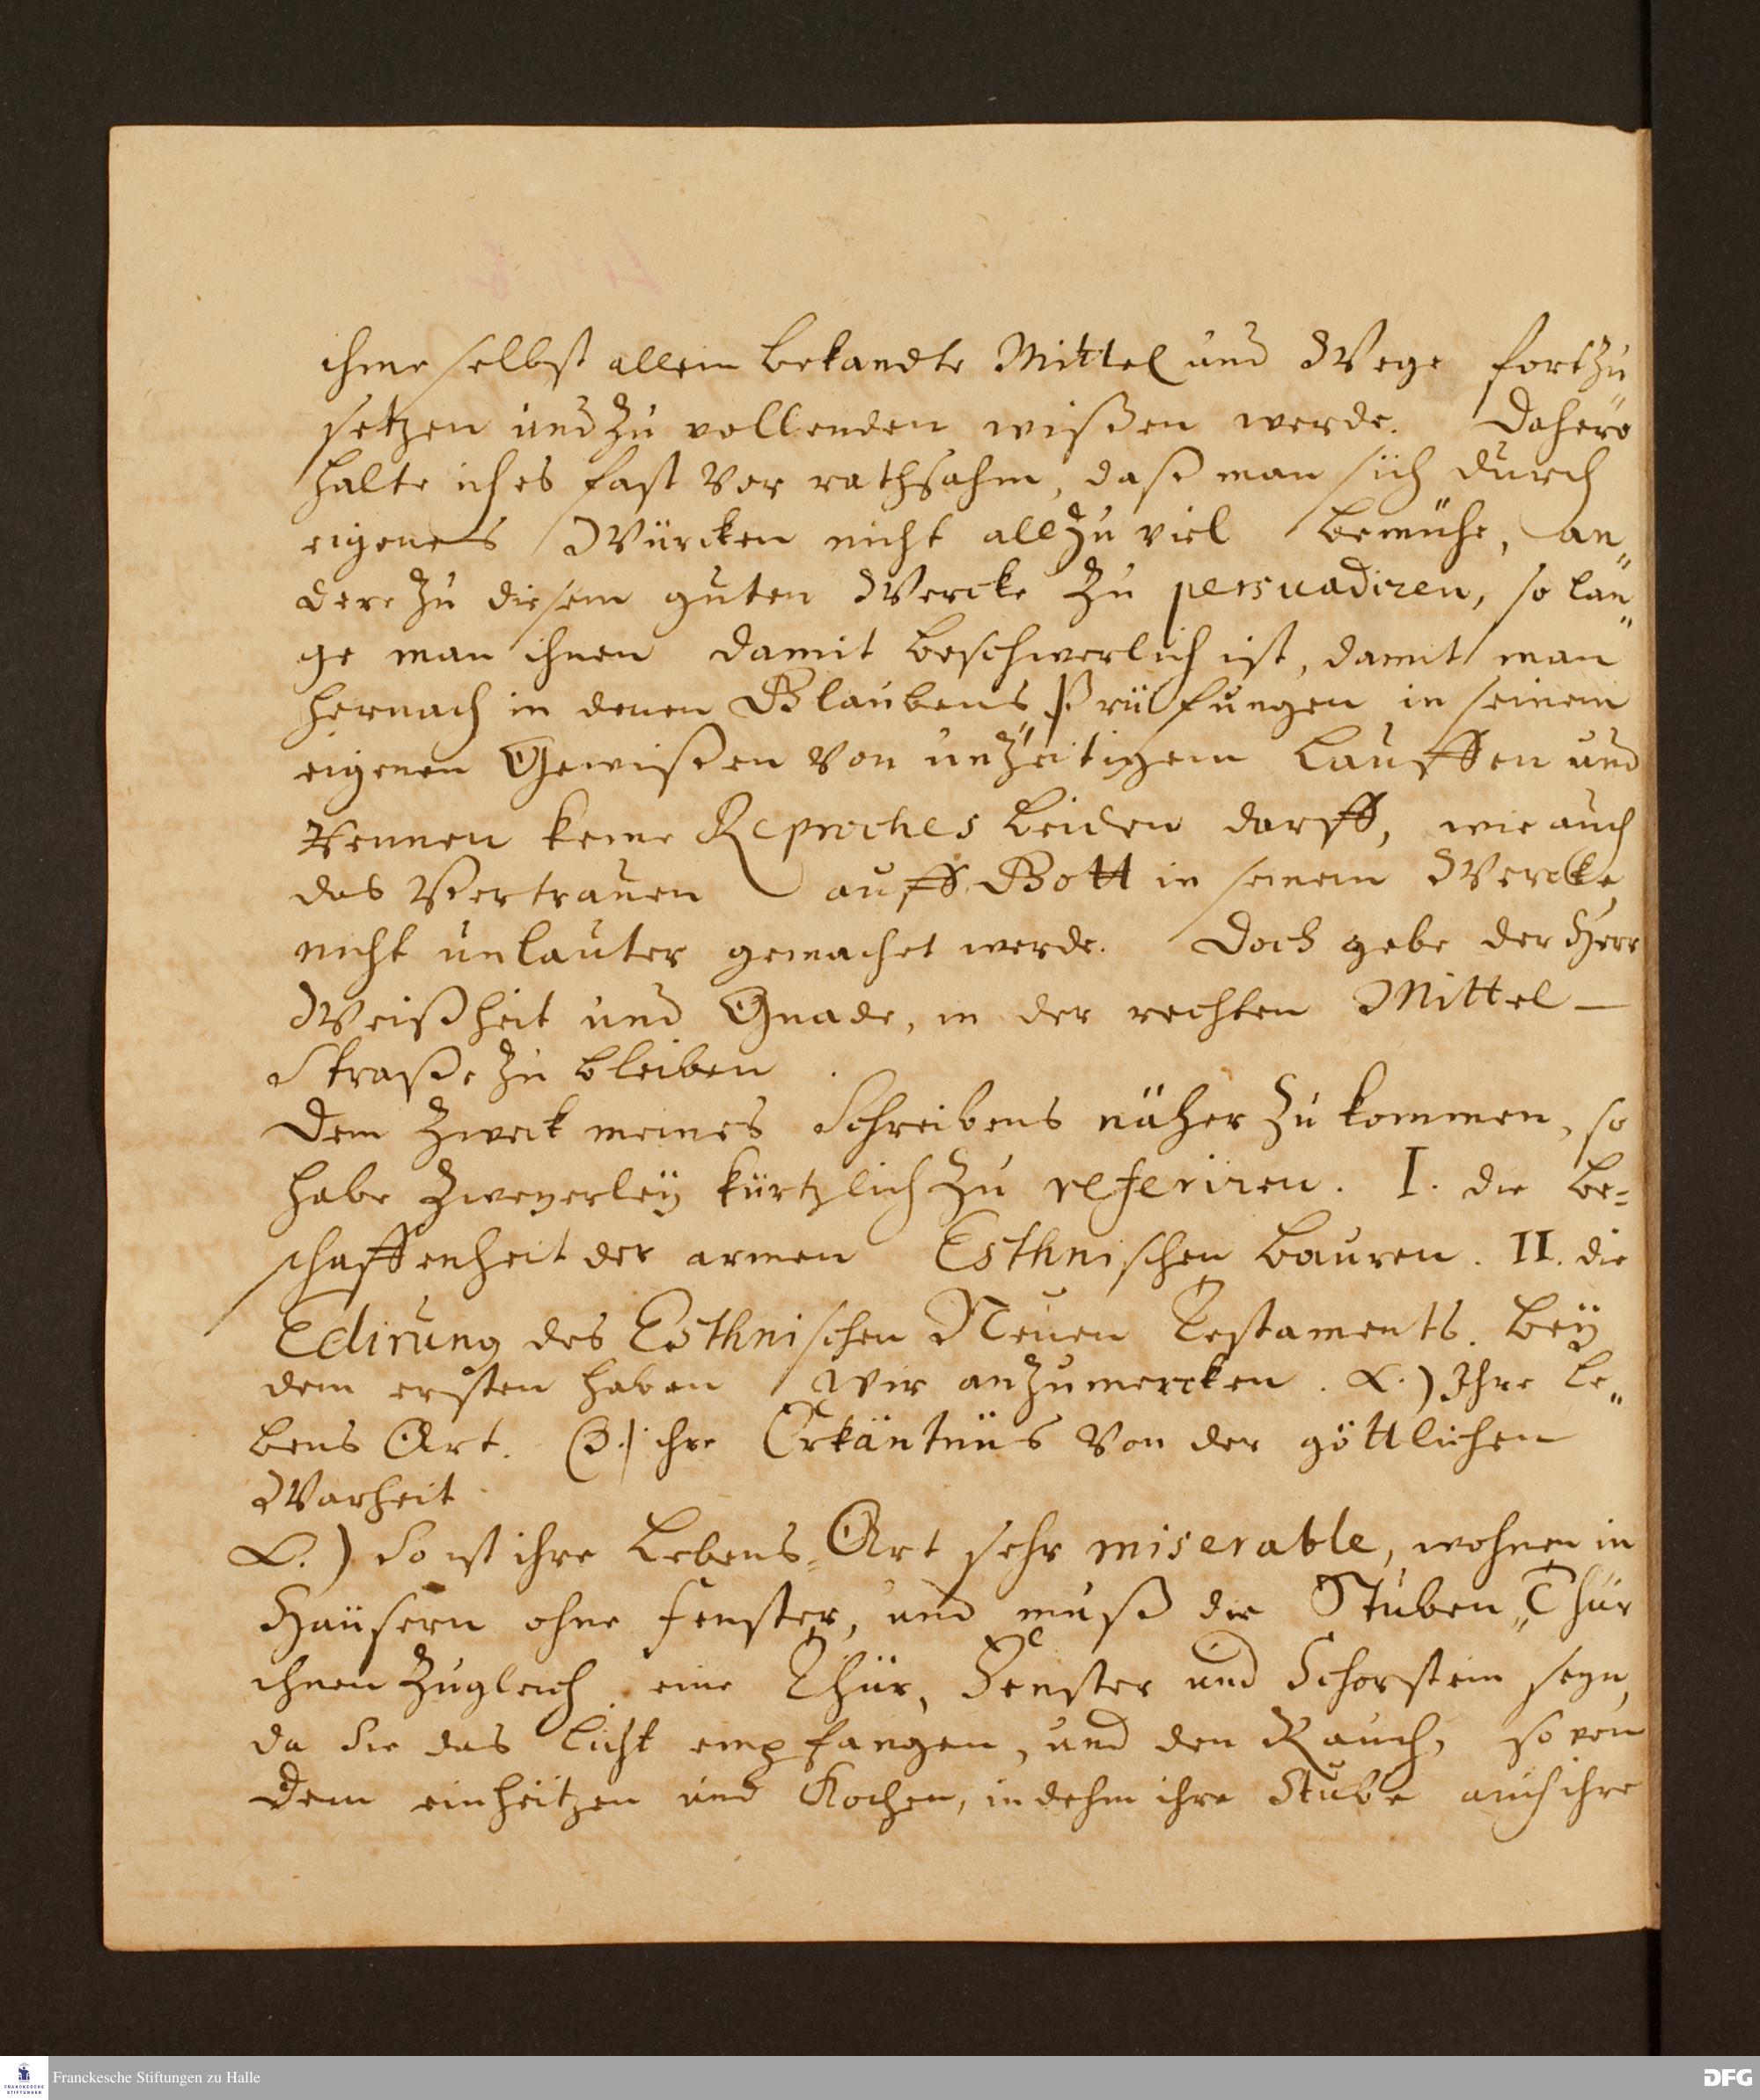 ihme selbst allein bekandte Mittel und Wege fortzu
setzen und zu vollenden wißen werde. Dahero
halte ich es fast vor rathsahm, daß man sich durch
eigenes Würcken nicht allzu viel bemühe, an„
dere zu diesem guten Wercke zu persuadiren, so lan„
ge man ihnen damit beschwerlich ist, damit man
hernach in denen Glaubens„Prüfungen in seinem
eigenen Gewißen von unzeitigem Lauffen und
Rennen keine Reproches leiden darff, wie auch
das Vertrauen auff Gott in seinem Wercke
nicht unlauter gemachet werde. Doch gebe der Herr
Weißheit und Gnade, in der rechten Mittel-
Straße zu bleiben.
Dem Zweck meines Schreibens näher zu kommen, so
habe zweyerleÿ kürtzlich zu referiren. I. die Be=
schaffenheit der armen Esthnischen Bauren. II. die
Edirung des Esthnischen Neuen Testaments. Beÿ
dem ersten haben wir anzumercken. α.) Ihre Le„
bens Art. β.) ihre Erkäntnüs von der göttlichen
Warheit
α.) So ist ihre Lebens=Art sehr miserable, wohnen in
Haüsern ohne Fenster, und muß die Stuben„Thür
ihnen zugleich eine Thür, Fenster und Schorstein seyn,
da Sie das Licht empfangen, und den Rauch, so von
dem einheitzen und Kochen, indehm ihre Stube auch ihre
Franckesche Stiftungen zu Halle
DFG
FRANCKESCHE
STIFTUNGEN